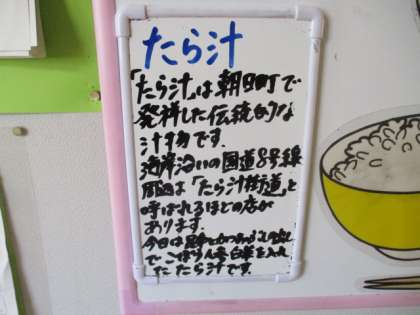 たら汁
「たら汁」は朝日町で
発祥した伝統的な
汁物です。
海岸沿いの国道8号線
周辺は「たら汁街道」と
呼ばれるほどの店が
あります。
今日は昆布とかつおぶしの出し
でごぼう人参白菜を入れ
たたら汁です。